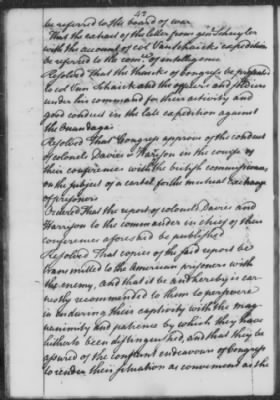 47
be referred to the board of war
That the extract of the letter from genl Schuyler
with the account of col Van Schaick's expedition
be referred to the comee of intelligence
Resolved That the thanks of Congress be presented
to col Van Schaick and the officers and soldiers
under his command for their activity and
good conduct in the late expedition against
the Onandagas
Resolved That Congress approve of the conduct
of colonels Davies & Harrison in the course of
their conferences with the british commissioners
on the subject of a cartel for the mutual exchange
of prisoners
Ordered That the report of colonels Davies and
Harrison to the commander in chief of their
conferences aforesaid be published
Resolved That copies of the said report be
transmitted to the American prisoners with
the enemy, and that it be and hereby is ear-
nestly recommended to them to persevere
in enduring their captivity with the mag-
nanimity and patience by which they have
hitherto been distinguished, and that they be
assured of the constant endeavours of Congress
to render their situation as convenient as the